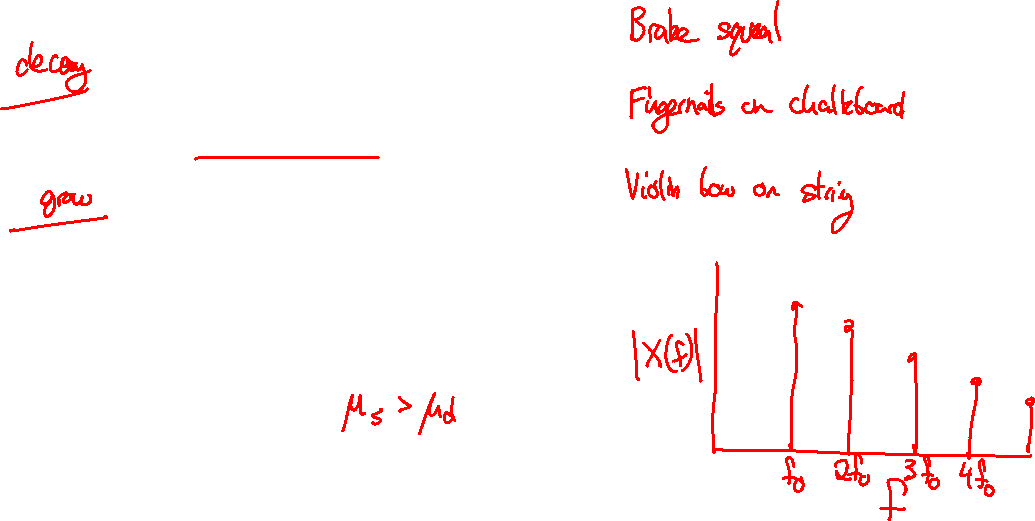 decay
grow
Brake squeal
Fingernails on chalkboard
Violin bow on string
|X(f)|
f₀ 2f₀ 3f₀ 4f₀
f
μₛ > μ_d